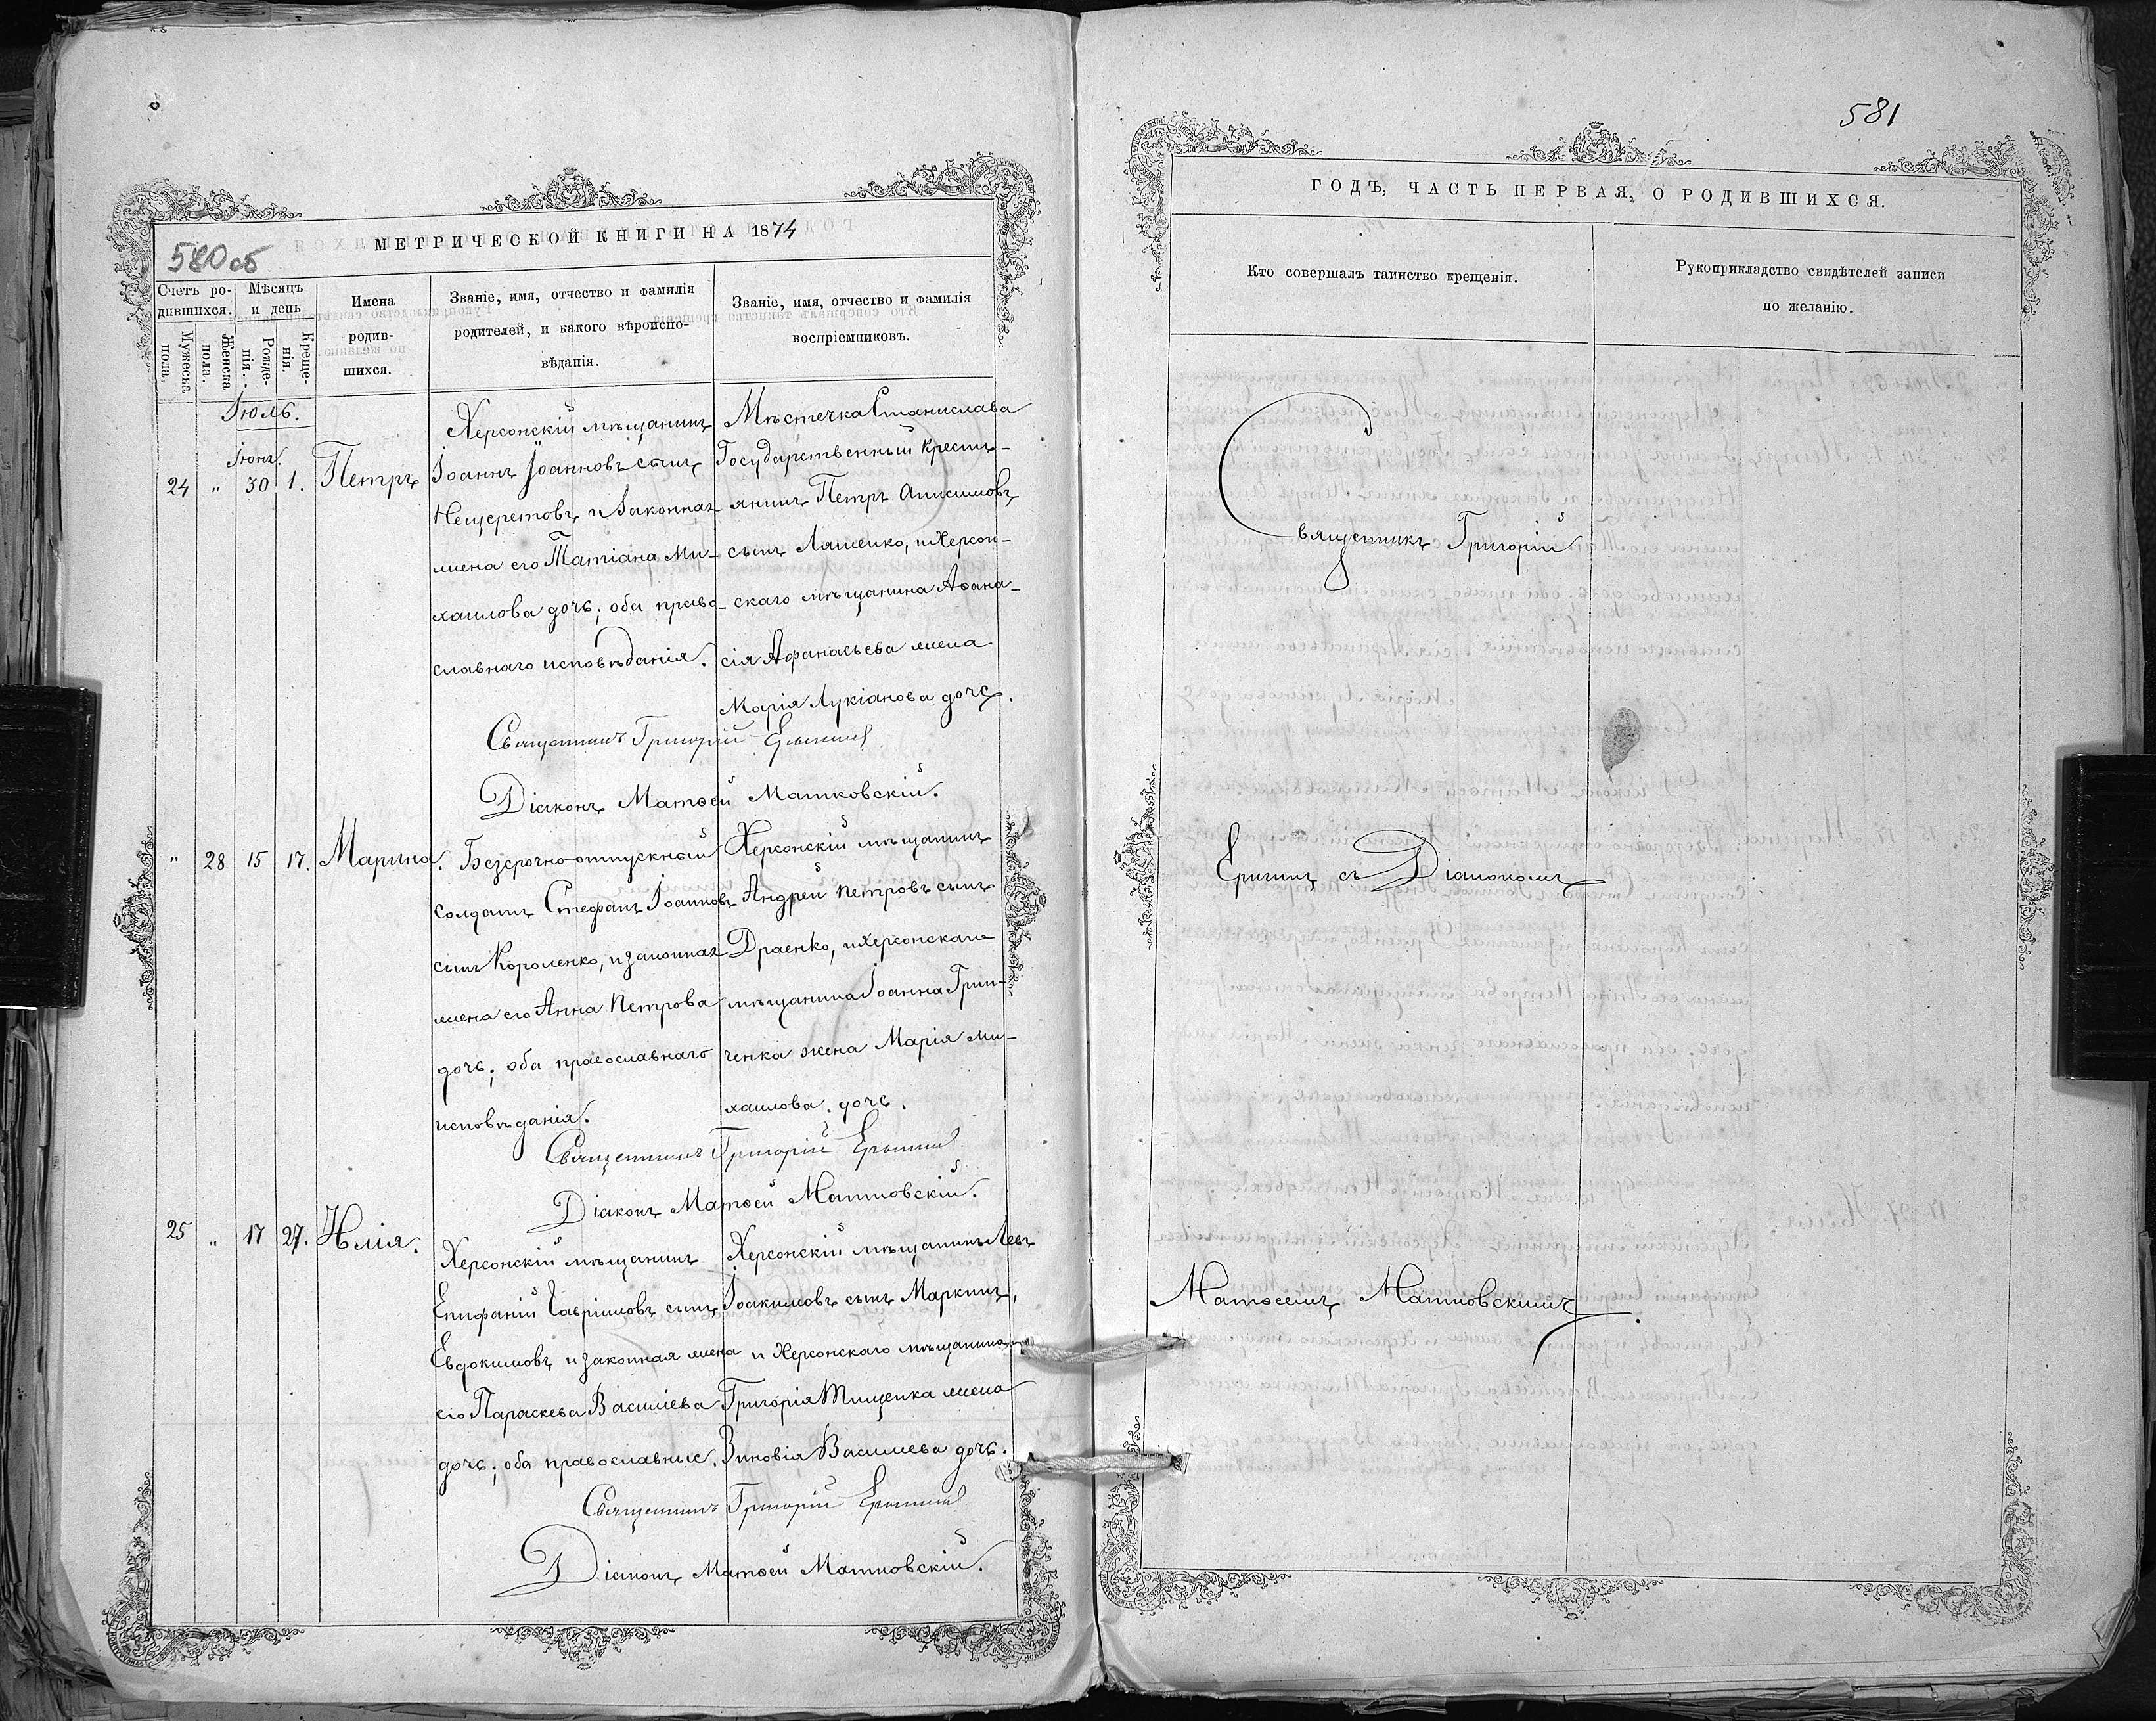 580об
МЕТРИЧЕСКОЙ КНИГИ НА 1874
Счетъ ро-
дившихся.
Мѣсяцъ
и день
Имена
родив-
шихся.
Званіе, имя, отчество и фамилія
родителей, и какого вѣроиспо-
вѣданія.
Званіе, имя, отчество и фамилія
воспріемниковъ.
Мужеска
пола.
Женска
пола.
Рожде-
нія.
Креще-
нія.
Іюль.
Іюнь.
24 „ 30 1. Петръ
Херсонскій мѣщанинъ
Іоаннъ Іоанновъ сынъ
Нещеретовъ и законная
жена его Татіана Ми-
хаилова дочь; оба право-
славнаго исповѣданія.
Мѣстечка Станислава
Государственный крестья-
янинъ Петръ Анисимовъ
сынъ Ляшенко, и Херсон-
скаго мѣщанина Аѳана-
сія Афанасьева жена
Марія Лукіанова дочь.
Священникъ Григорій
Діаконъ Матѳей Матковскій.
„ 28 15 17. Марина.
Безсрочно-отпускный
солдатъ Стефанъ Іоанновъ
сынъ Короленко, и законная
жена его Анна Петрова
дочь; оба православнаго
исповѣданія.
Херсонскій мѣщанинъ
Андрей Петровъ сынъ
Драенко, и Херсонскаго
мѣщанина Іоанна Гри-
ченка жена Марія Ми-
хаилова дочь.
Священникъ Григорій
Діаконъ Матѳей Матковскій.
25 „ 17 27. Илія.
Херсонскій мѣщанинъ
Епифаній Гавріиловъ сынъ
Евдокимовъ и законная жена
его Параскева Василіева
дочь; оба православные.
Херсонскій мѣщанинъ Левъ
Іоакимовъ сынъ Маркинъ,
и Херсонскаго мѣщанина
Григорія Тищенка жена
Зиновія Василиева дочь.
Священникъ Григорій
Діаконъ Матѳей Матковскій.
581
ГОДЪ, ЧАСТЬ ПЕРВАЯ, О РОДИВШИХСЯ.
Кто совершалъ таинство крещенія.
Рукоприкладство свидѣтелей записи
по желанію.
Священникъ Григорій
съ Діакономъ
Матѳеемъ Матковскимъ.